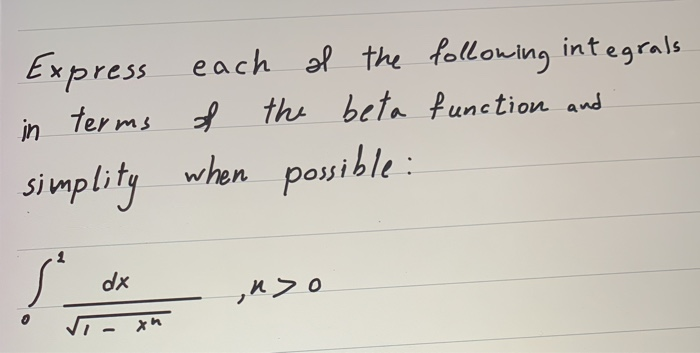 Express each of the following integrals
in terms of the beta function and
simplity when possible:
∫₀¹ dx / √(1 - xⁿ) , n > 0